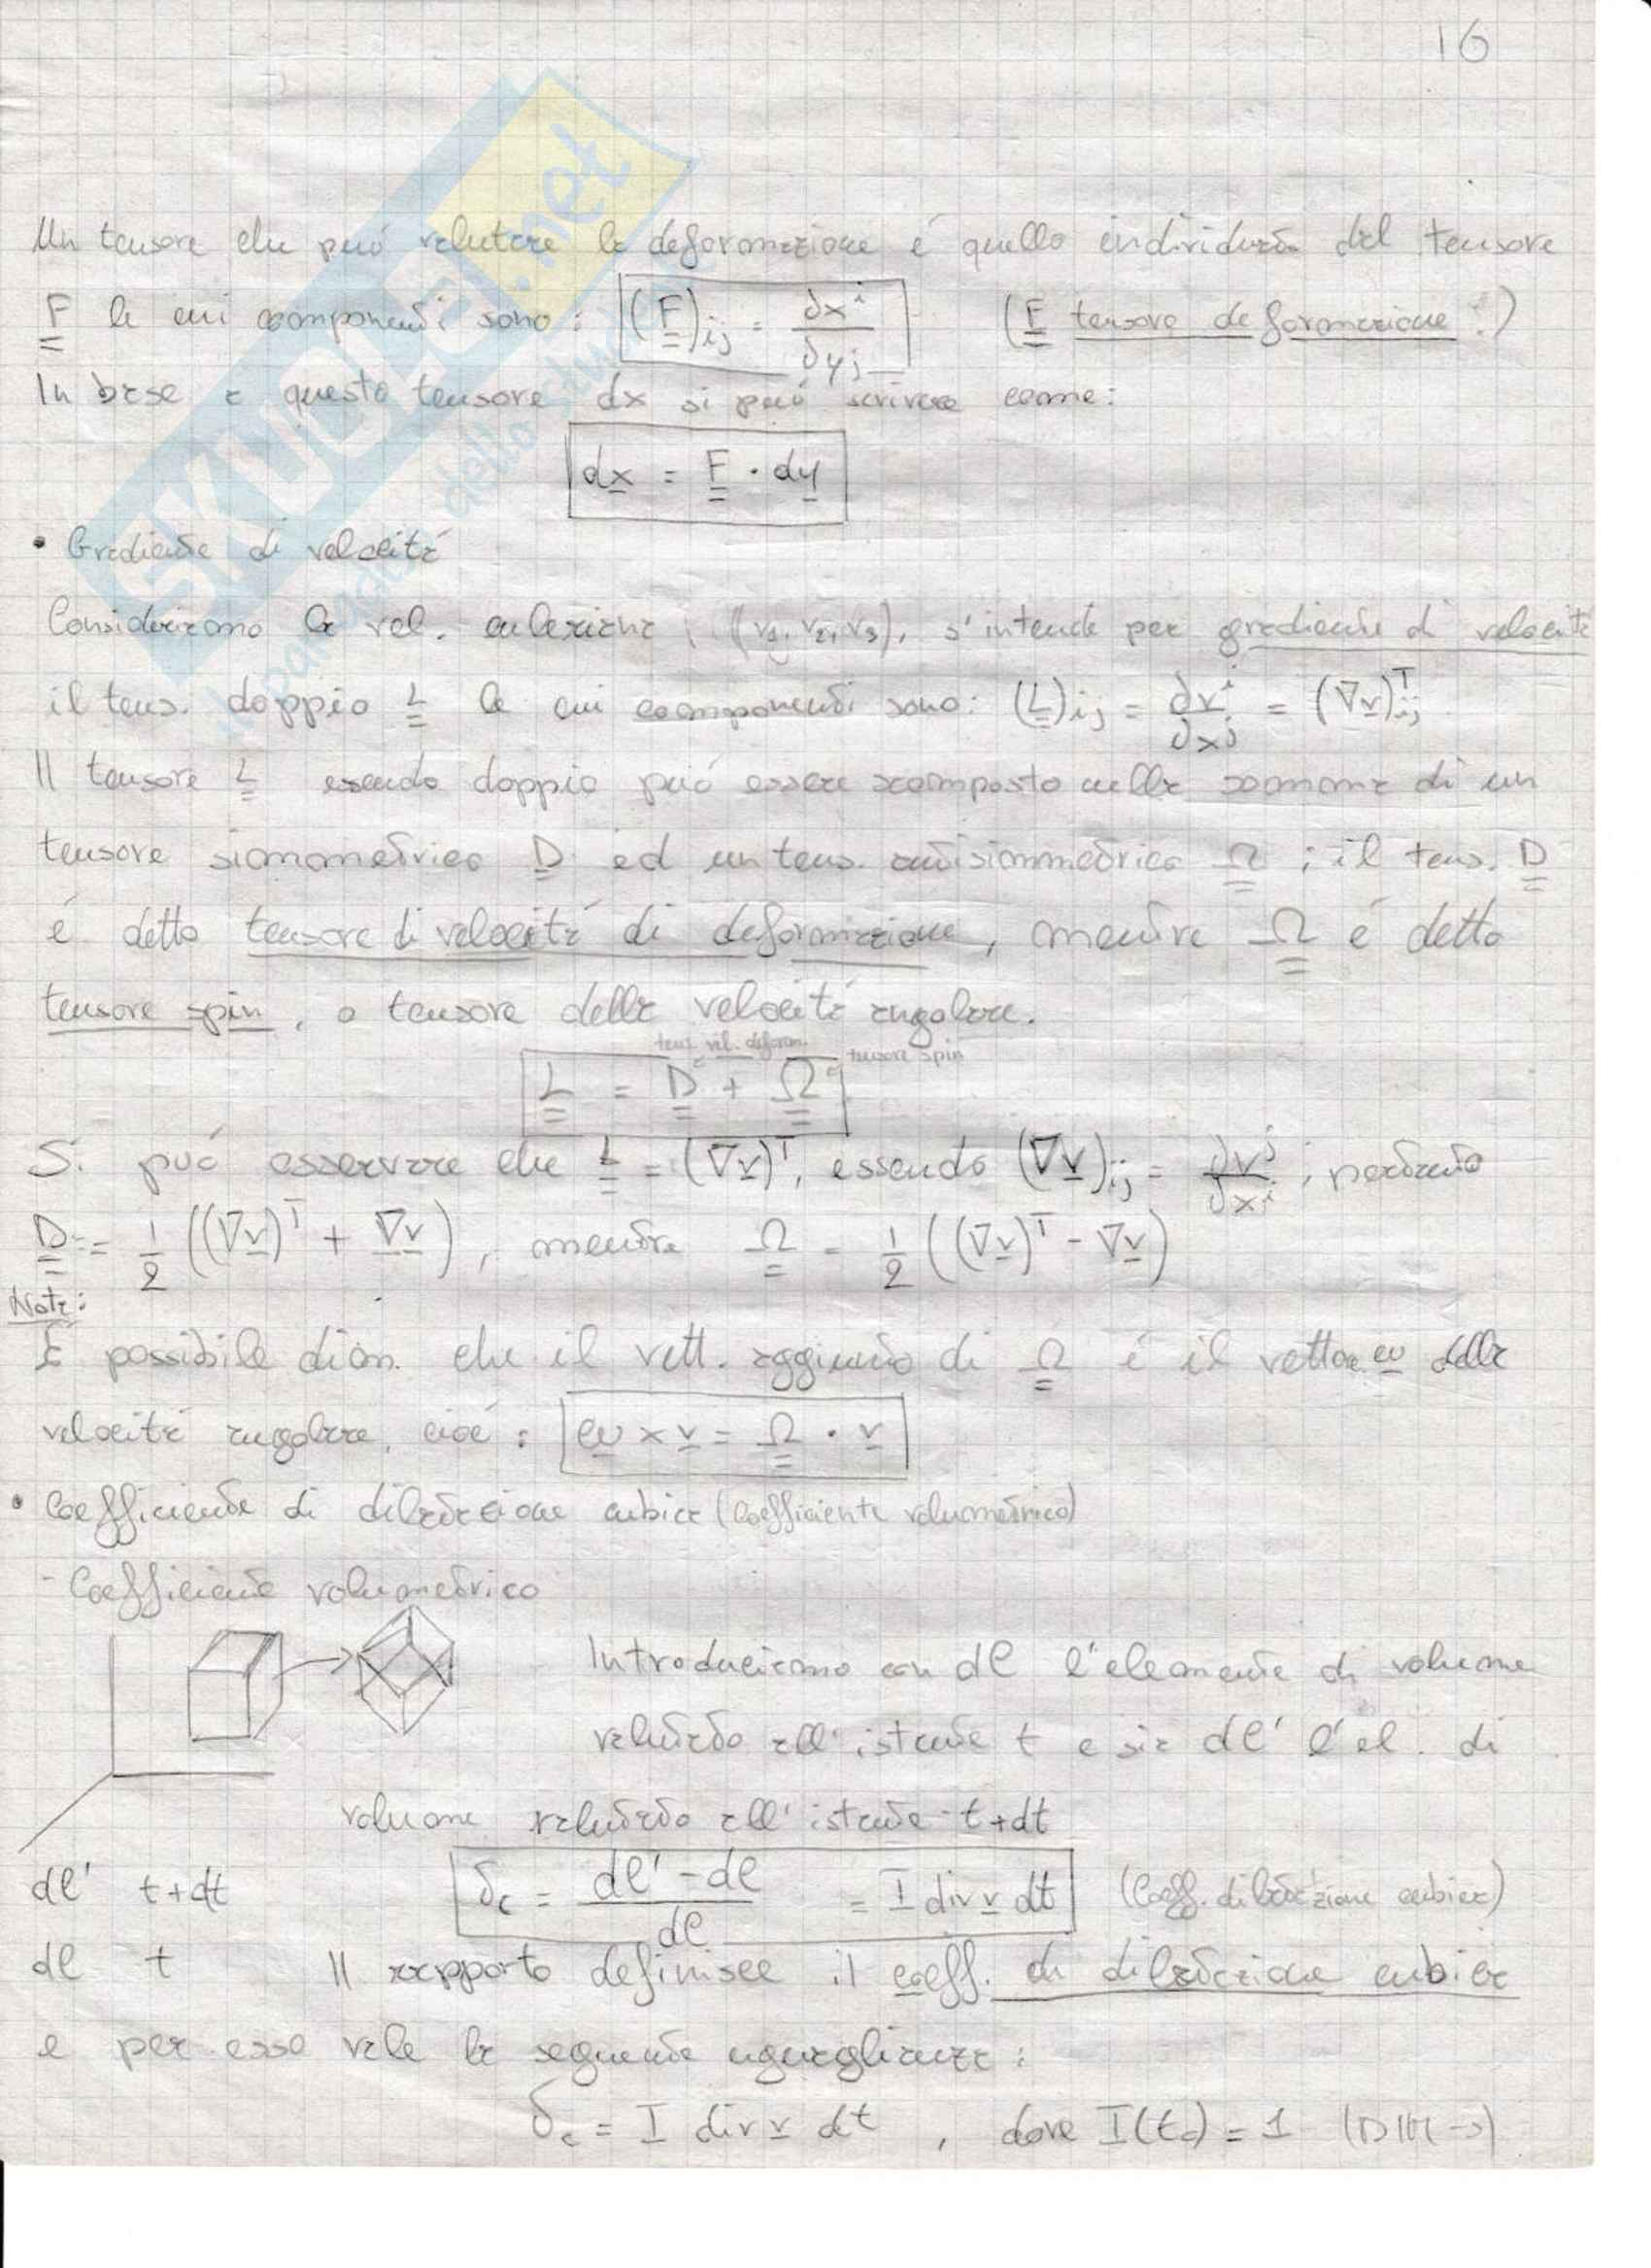 16
Un tensore che può valutare la deformazione é quello individuato dal tensore
F le cui componenti sono: (F)ij = ∂x^i/∂yj (F tensore deformazione!)
In base a questo tensore dx si può scrivere come:
dx = F · dy
• Gradiente di velocitá
Consideriamo la vel. euleriana, (v1, v2, v3), s'intende per gradiente di velocitá
il tens. doppio L le cui componenti sono: (L)ij = ∂v^i/∂x^j = (∇v)^T ij
Il tensore L essendo doppio puó essere scomposto nella somma di un
tensore simmetrico D ed un tens. antisimmetrico Ω ; il tens. D
é detto tensore di velocitá di deformazione, mentre Ω é detto
tensore spin, o tensore della velocitá angolare.
tens. vel. deform. tensore spin
L = D + Ω
Si puó osservare che L = (∇v)^T, essendo (∇v)ij = ∂v^j/∂x^i, pertanto
D := 1/2 ((∇v)^T + ∇v), mentre Ω = 1/2 ((∇v)^T - ∇v)
Nota:
É possibile dim. che il vett. aggiunto di Ω é il vettore ω della
velocitá angolare, cioé : ω × v = Ω · v
• Coefficiente di dilatazione cubica (Coefficiente volumetrico)
- Coefficiente volumetrico
Introduciamo con dC l'elemento di volume
valutato all'istante t e sia dC' l'el. di
volume valutato all'istante t+dt
dC' t+dt δc = (dC' - dC)/dC = I div v dt (Coeff. dilatazione cubica)
dC t Il rapporto definisce il coeff. di dilatazione cubica
e per esso vale la seguente uguaglianza:
δc = I div v dt , dove I(t0) = 1 (DIM →)
SKUOLA.net
il paradiso dello studente